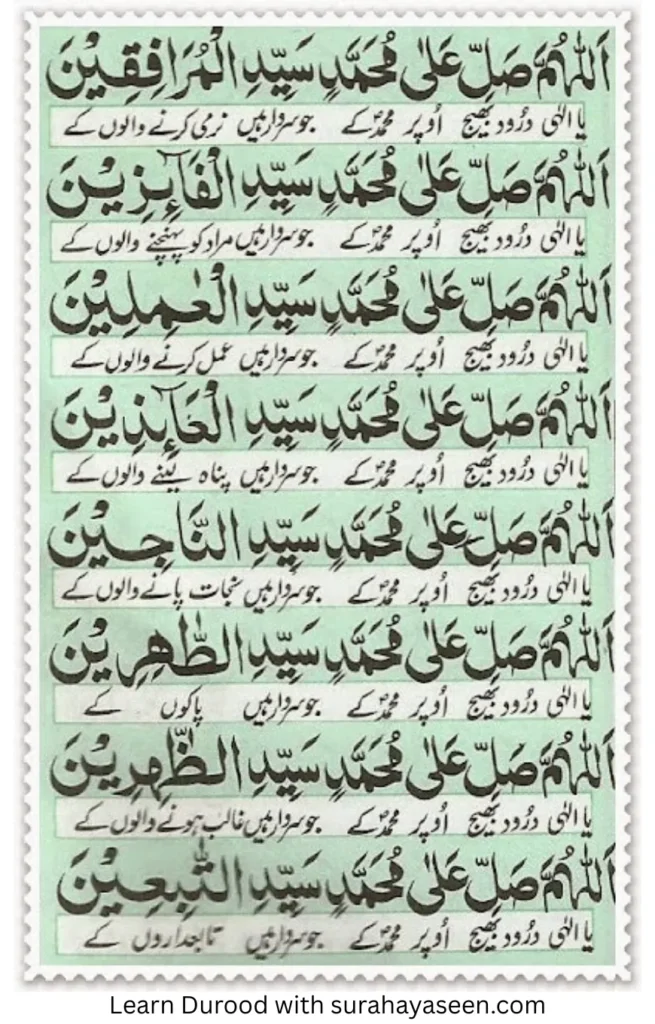 اَللّٰهُمَّ صَلِّ عَلٰى مُحَمَّدٍ سَيِّدِ الْمُرَافِقِيْنَ
یا الٰہی درُود بھیج اُوپر محمدؐ کے جو سردار ہیں نرمی کرنے والوں کے
اَللّٰهُمَّ صَلِّ عَلٰى مُحَمَّدٍ سَيِّدِ الْفَآئِزِيْنَ
یا الٰہی درُود بھیج اُوپر محمدؐ کے جو سردار ہیں مراد کو پہنچنے والوں کے
اَللّٰهُمَّ صَلِّ عَلٰى مُحَمَّدٍ سَيِّدِ الْعٰمِلِيْنَ
یا الٰہی درُود بھیج اُوپر محمدؐ کے جو سردار ہیں عمل کرنے والوں کے
اَللّٰهُمَّ صَلِّ عَلٰى مُحَمَّدٍ سَيِّدِ الْعَآئِذِيْنَ
یا الٰہی درُود بھیج اُوپر محمدؐ کے جو سردار ہیں پناہ لینے والوں کے
اَللّٰهُمَّ صَلِّ عَلٰى مُحَمَّدٍ سَيِّدِ النَّاجِيْنَ
یا الٰہی درُود بھیج اُوپر محمدؐ کے جو سردار ہیں نجات پانے والوں کے
اَللّٰهُمَّ صَلِّ عَلٰى مُحَمَّدٍ سَيِّدِ الطّٰهِرِيْنَ
یا الٰہی درُود بھیج اُوپر محمدؐ کے جو سردار ہیں پاکوں کے
اَللّٰهُمَّ صَلِّ عَلٰى مُحَمَّدٍ سَيِّدِ الظّٰهِرِيْنَ
یا الٰہی درُود بھیج اُوپر محمدؐ کے جو سردار ہیں غالب ہونے والوں کے
اَللّٰهُمَّ صَلِّ عَلٰى مُحَمَّدٍ سَيِّدِ التّٰبِعِيْنَ
یا الٰہی درُود بھیج اُوپر محمدؐ کے جو سردار ہیں تابعداروں کے
Learn Durood with surahayaseen.com